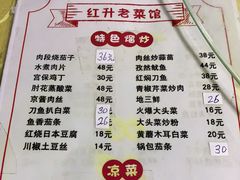 红升老菜馆
特色熘炒
肉段烧茄子 36元
水煮肉片 48元
宫保鸡丁 30元
肘花蒸酸菜 48元
京酱肉丝 48元
刀鱼扒白菜 30元
鱼香茄条 26元
红烧日本豆腐 18元
川椒土豆丝 14元
肉丝炒蒜苗 38元
孜然鱿鱼 44元
红焖刀鱼 38元
青椒芹菜炒肉 28元
地三鲜 26
火爆大头菜 16元
大头菜炒粉 18元
黄蘑木耳白菜 38元
锅包茄条 30
凉菜